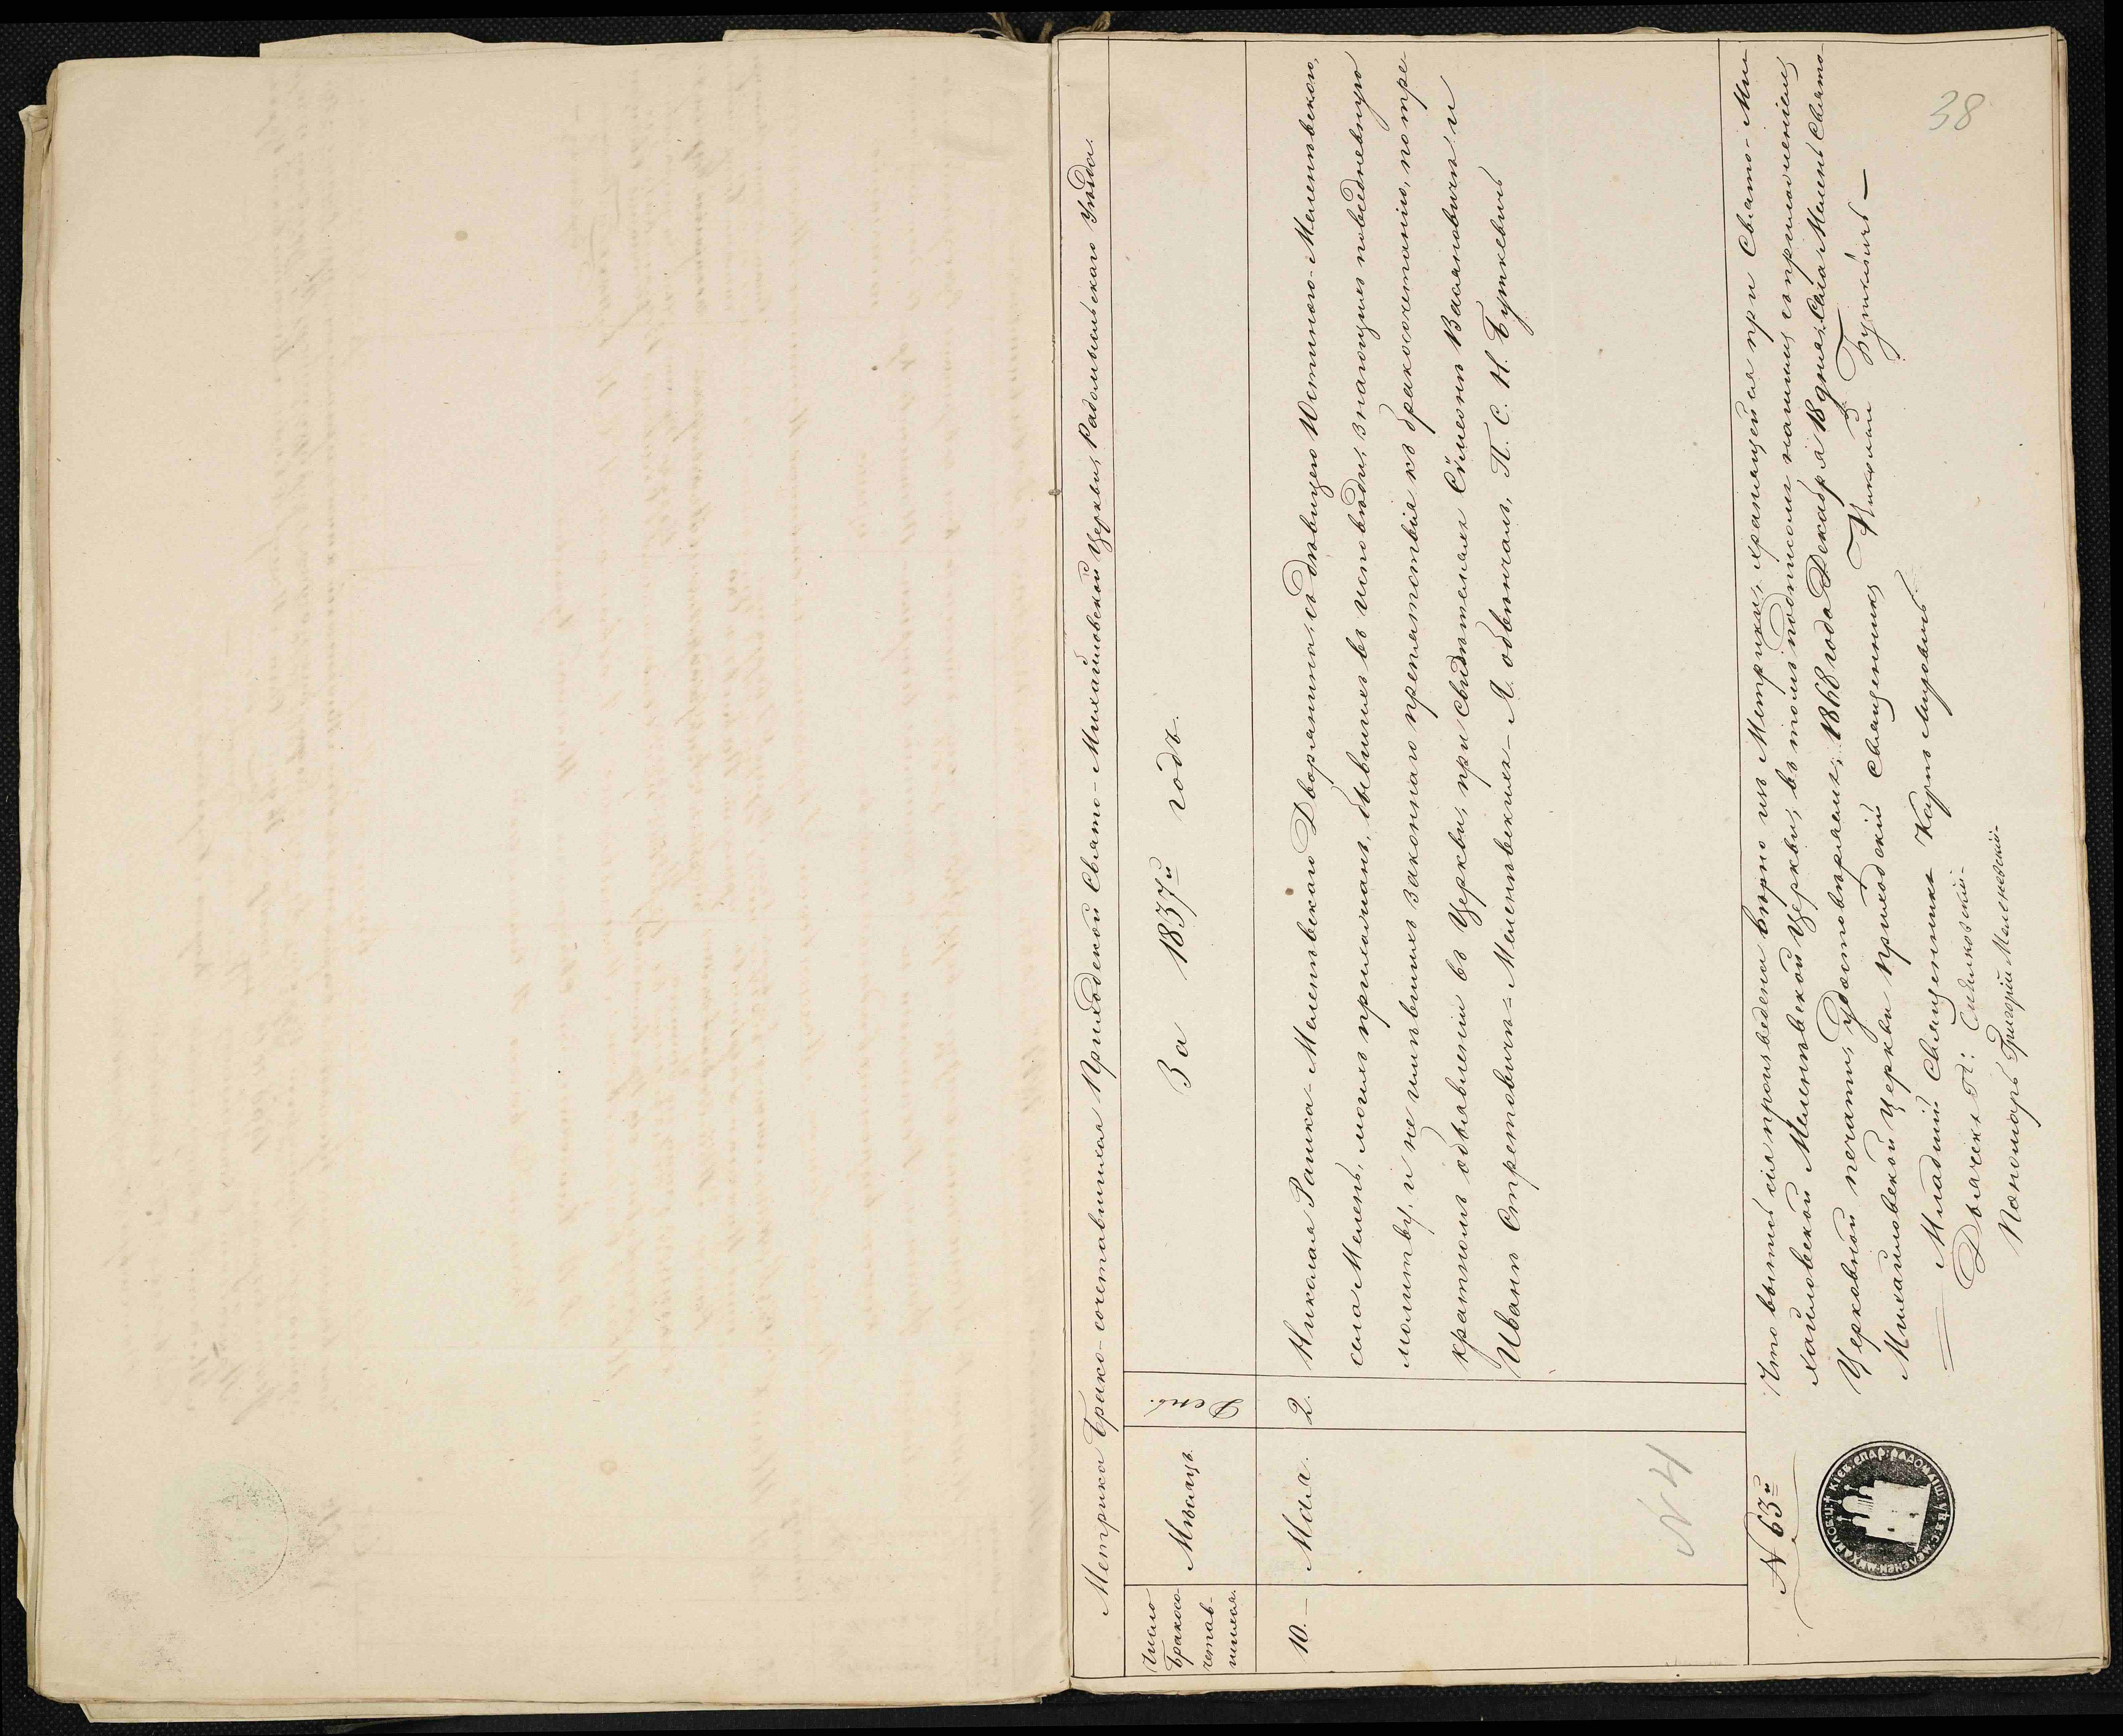 38
Метрика Брако-сочетавшихся Приходской Свято-Михайловской Церкви, Радомысльскаго Уѣзда.
Число
Бракосо-
четав-
шихся.
Мѣсяцъ.
День.
За 1837й годъ.
10.-
Мая.
2.
Николая Романа-Меленѣвскаго Дворянина, съ дѣвицею Устиною-Меленѣвскою,
села Мелень, моихъ прихожанъ, бывшихъ въ исповѣди, знающихъ повседневную
молитву, и не имѣвшихъ законнаго препятствія къ бракосочетанію, по тре
кратномъ объявленіи въ Церкви, при свидѣтеляхъ Симеонъ Васяновичъ и
Иванъ Стретовичъ-Меленѣвскихъ - Я. обвѣнчалъ, П. С. Н. Буткевичъ
N 4
N 63й
Что выпись сія произведена вѣрно изъ Метрики, хранящейся при Свято-Ми
хайловской Меленѣвской Церкви, въ томъ подписомъ нашимъ съ приложеніемъ
Церковной печати, удостовѣряемъ, 1868 года Декабря 18 дня. Села Мелень Свято-
Михайловской Церкви приходскій Священникъ Николай Буткевичъ -
Младшій Священникъ Карпъ
Дьячекъ П:
Пономарь Григорій Меленевскій-